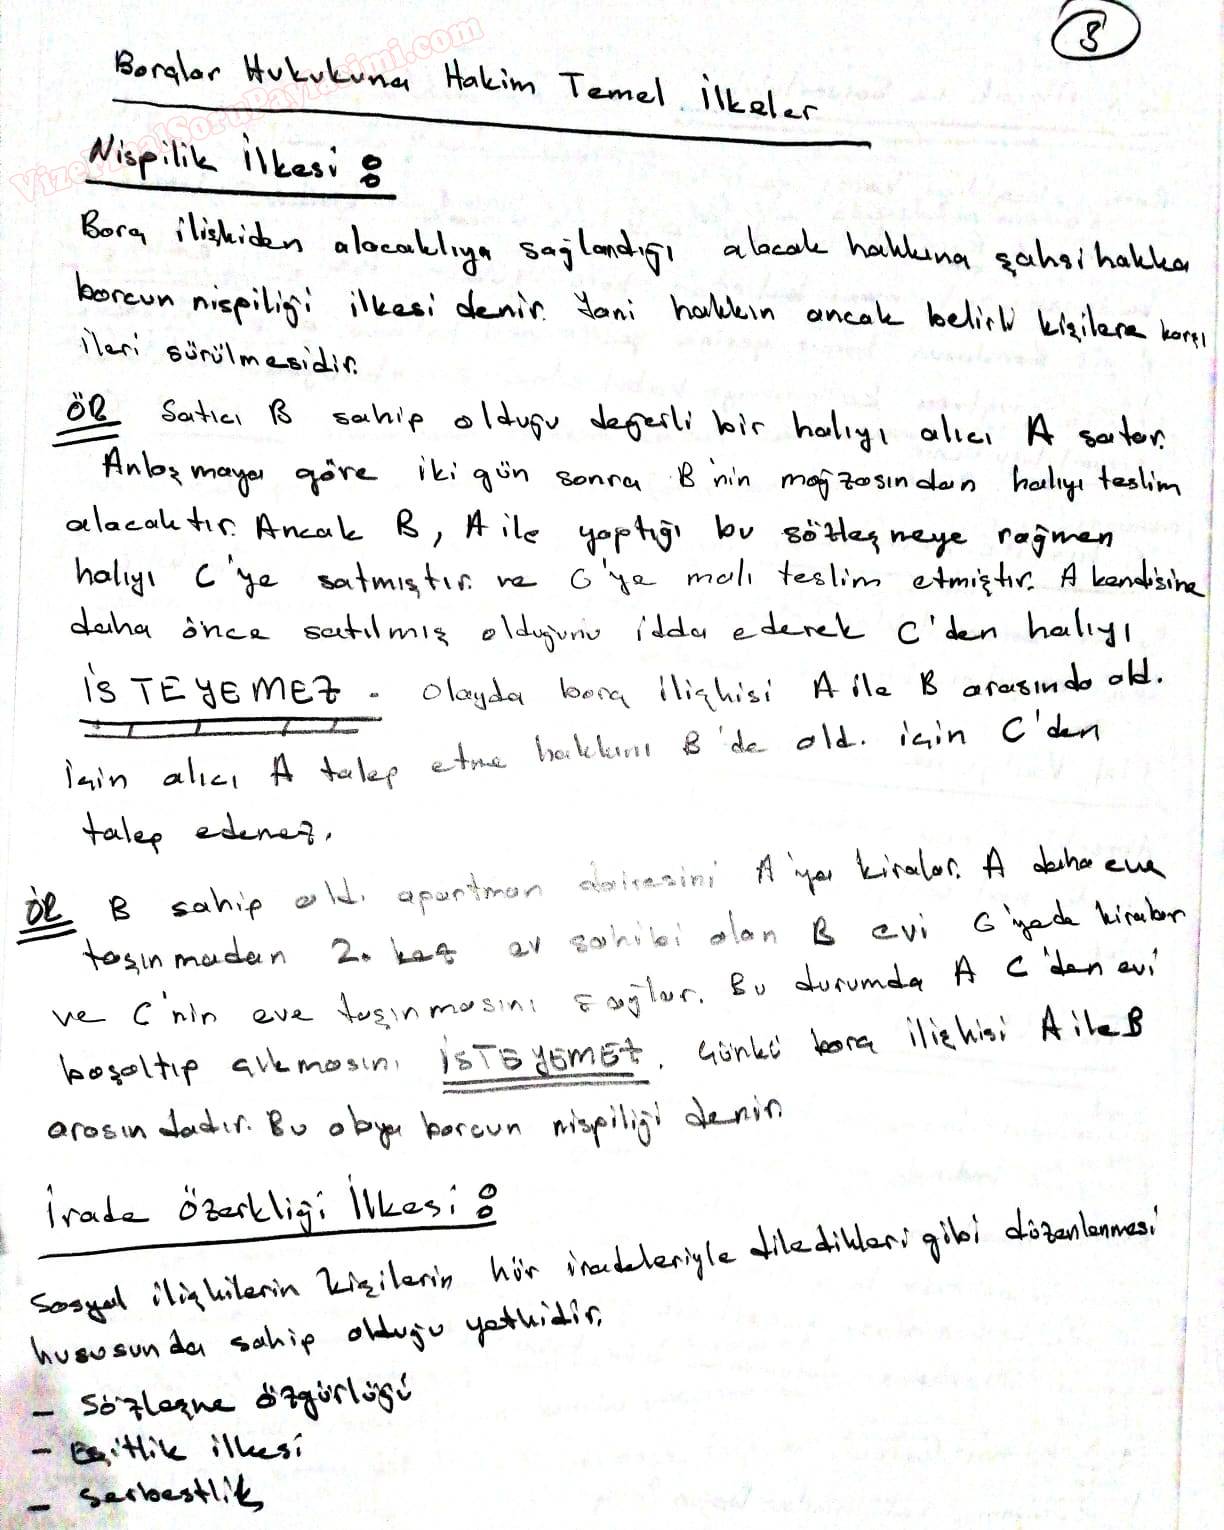 3
VizeFinalSoruPaylasimi.com
Borçlar Hukukuna Hakim Temel İlkeler
Nispilik İlkesi:
Borç ilişkiden alacaklıya sağlandığı alacak hakkına şahsi hakka
borcun nispiliği ilkesi denir. Yani hakkın ancak belirli kişilere karşı
ileri sürülmesidir.
ÖR Satıcı B sahip olduğu değerli bir halıyı alıcı A satar.
Anlaşmaya göre iki gün sonra B'nin mağzasından halıyı teslim
alacaktır. Ancak B, A ile yaptığı bu sözleşneye rağmen
halıyı C'ye satmıştır. ve C'ye malı teslim etmiştir. A kendisine
daha önce satılmış olduğunu idda ederek C'den halıyı
İSTEYEMEZ. Olayda borç ilişkisi A ile B arasında old.
için alıcı A talep etme hakkını B'de old. için C'den
talep edemez.
ÖR B sahip old. apartman dairesini A'ya kiralar. A daha eve
taşınmadan 2. kez ev sahibi olan B evi C'yede kiralar
ve C'nin eve taşınmasını sağlar. Bu durumda A C'den evi
boşaltıp çıkmasını İSTEYEMEZ. Çünkü borç ilişkisi A ile B
arasındadır. Bu olaya borcun nispiliği denir.
İrade Özerkliği İlkesi:
Sosyal ilişkilerin kişilerin hür iradeleriyle diledikleri gibi düzenlenmesi
hususunda sahip olduğu yetkidir.
- Sözleşme özgürlüğü
- Eşitlik ilkesi
- Serbestlik